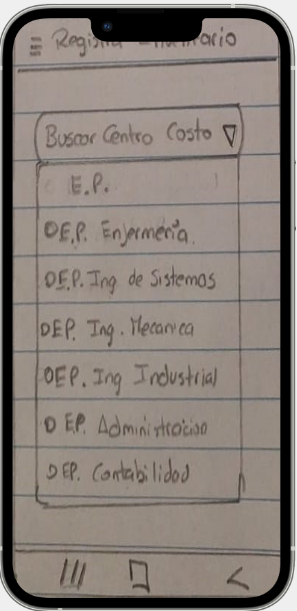 Registra
Buscar Centro Costo
E.P.
E.P. Enfermería
E.P. Ing de Sistemas
E.P. Ing. Mecanica
E.P. Ing Industrial
E.P. Administración
E.P. Contabilidad